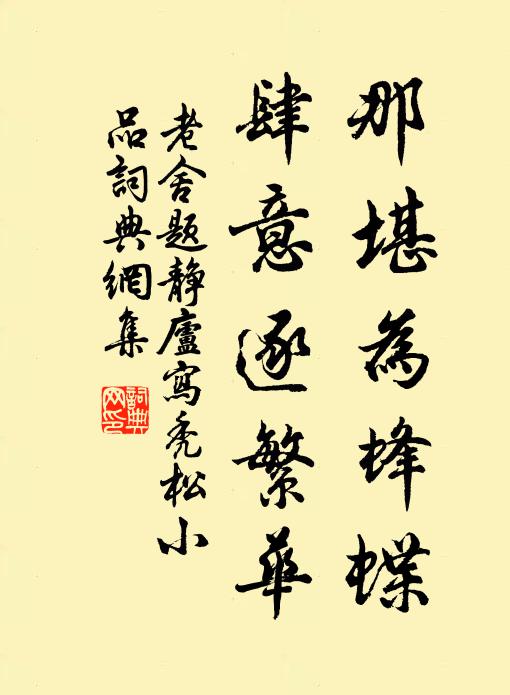 那堪為蜂蝶
肆意逐繁華
老舍題靜廬寫禿松小
品詞典網集
詞典
网印